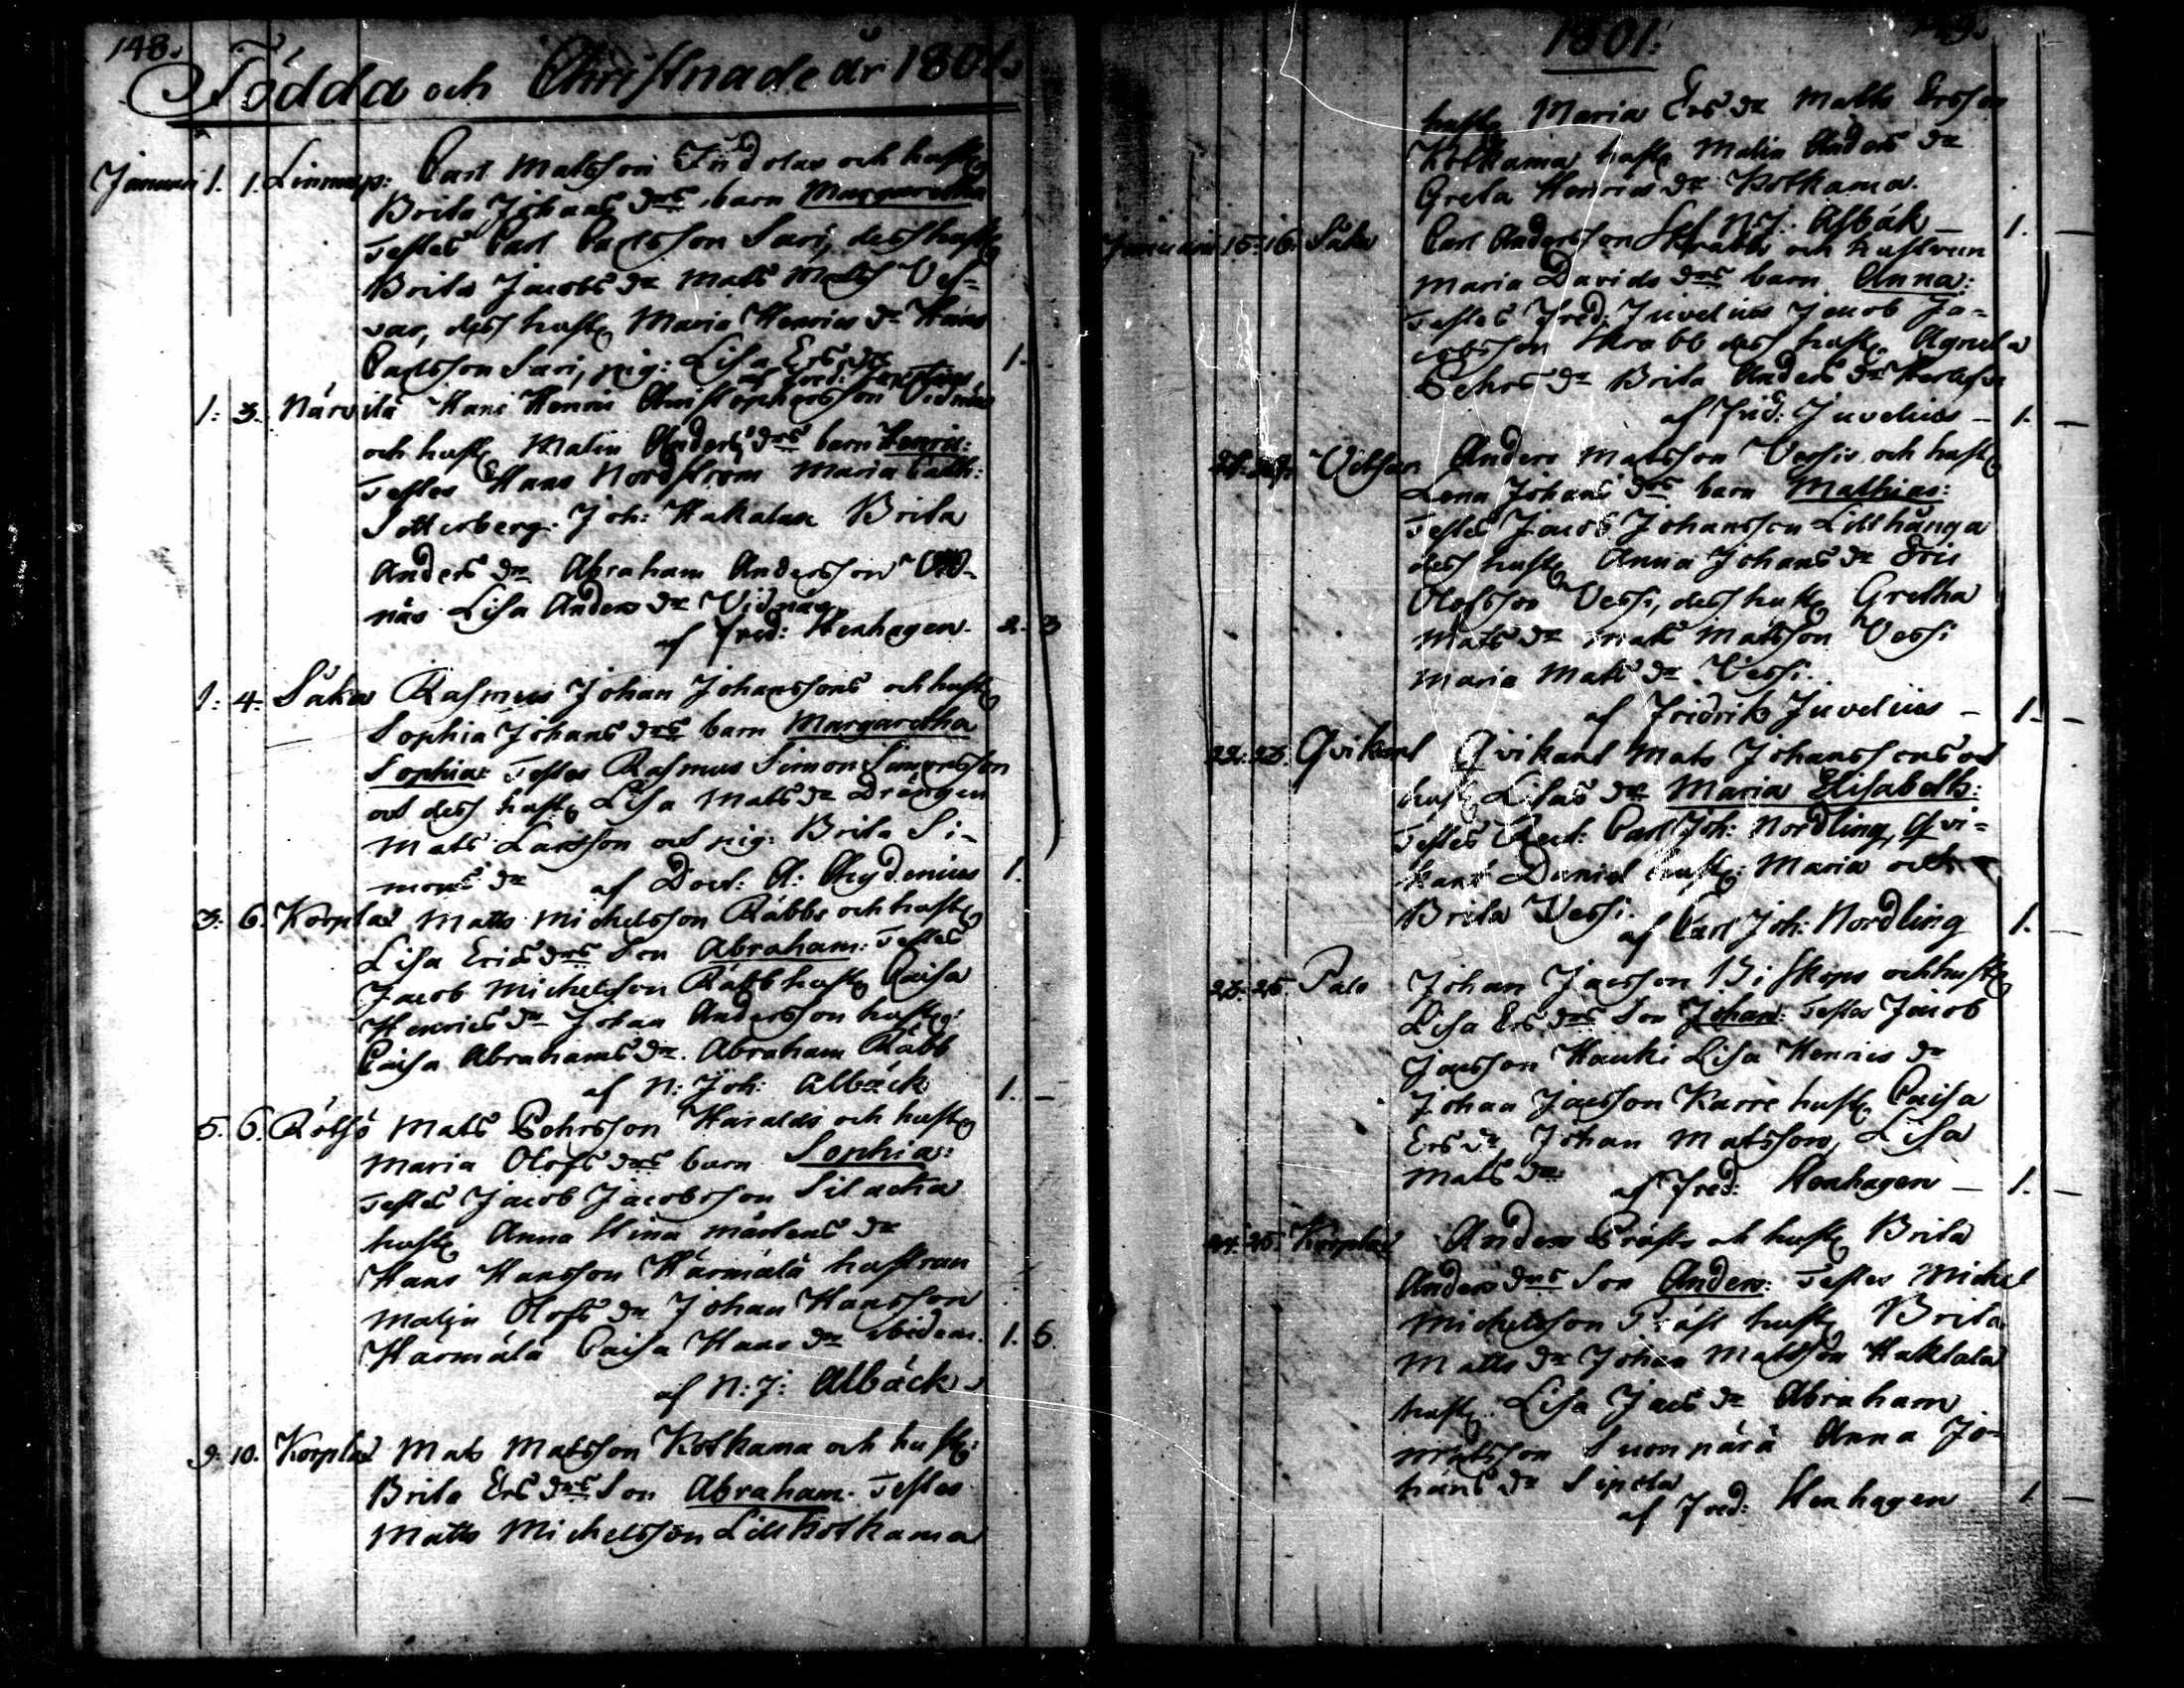 148.
Födda och Christnade år 1801.
Januari 1. 1. Linnusp: Carl Matsson Indolas och hust:
Brita Johans drs barn Margaretha
Testes Carl Carlsson Sari, dess hust:
Brita Jacobs dr Mats Mats Ves=
var, dess hust: Maria Henrics dr Hans
Carlsson Sari, pig: Lisa Ers dr 1.
af Fred:
1: 3. Närvilä Hans Henric Christophersson Vidnäs
och hust: Malin Anders drs barn Henric:
Testes Hans Nordstrom Maria Cath:
Söderberg. Joh: Hakalax Brita
Anders dr Abraham Andersson Vid-
näs Lisa Anders dr Vidnäs
af Fred: Henhagen. 2. 3
1: 4. Såka Rasmus Johan Johanssons och hust:
Sophia Johans drs barn Margaretha
Sophia: Testes Rasmus Simon Simonsson
och dess hust: Lisa Mats dr Drängen
Mats Larsson och pig: Brita Si-
mons dr af Doct: A: Chydenius 1.
3: 6. Korplax Matts Michelsson Räbbs och hust:
Lisa Erics drs Son Abraham: Testes
Jacob Michelsson Räbb hust: Caisa
Henrics dr Johan Andersson hust:
Caisa Abrahams dr. Abraham Räbb
af N: Joh: Albäck 1. -
5. 6. Rötsö Mats Pehrsson Haralds och hust:
Maria Olofs drs barn Sophia:
Testes Jacob Jacobsson Silacka
hust: Anna Stina Mårtens dr
Hans Hansson Härmälä hustrun
Malin Olofs dr Johan Hansson
Harmälä Caisa Hans dr ibidem. 1. 6.
af N: J: Albäck.
9. 10. Korplax Mats Matsson Kotkama och hust:
Brita Ers drs Son Abraham. Testes
Matts Michelsson Lillkotkama
1801:
149.
hust: Maria Ers dr Matts Ersson
Kotkama hust: Malin Anders dr
Greta Henrics dr Kotkama.
af N: J: Albäk - 1. -
Januari 15. 16. Såka Carl Andersson Krabb och hustrun
Maria Davids drs barn Anna:
Testes Fred: Juvelius Jacob Ja=
cobsson Krabb dess hust: Agneta
Pehrs dr Brita Anders dr
af Frid: Juvelius - 1. -
Vitsar Anders Matsson Vessis och hust:
Lena Johans drs barn Mathias:
Testes Jacob Johansson Lillhånga
dess hust: Anna Johans dr Eric
Olofsson Vessi, dess hust: Gretha
Mats dr Mats Matsson Vessi
Maria Mats dr Vessi.
af Fridrik Juvelius - 1. -
22. 23. Qvikant Qvikant Mats Johanssons och
hust: Lisas dr Maria Elisabeth:
Testes Carl Joh: Nordling, Qvi=
kant Daniel hust: Maria och
Brita Vessi.
af Carl Joh: Nordling 1. -
23. 25. Palo Johan Jacsson Biskops och hust:
Lisa Ers drs Son Johan: Testes Jacob
Jacsson Hauki Lisa Henrics dr
Johan Jacsson Karre hust: Caisa
Ers dr Johan Matsson, Lisa
Mats dr
af Fred: Henhagen - 1. -
24. 25. Korplax Anders Präst och hust: Brita
Anders drs Son Anders: Testes Michel
Michelsson Präst hust: Brita
Matts dr Johan Matsson Haktala
hust: Lisa Jacs dr Abraham
Matsson Suonpärä Anna Jo=
hans dr Sipola
af Fred: Henhagen 1. -